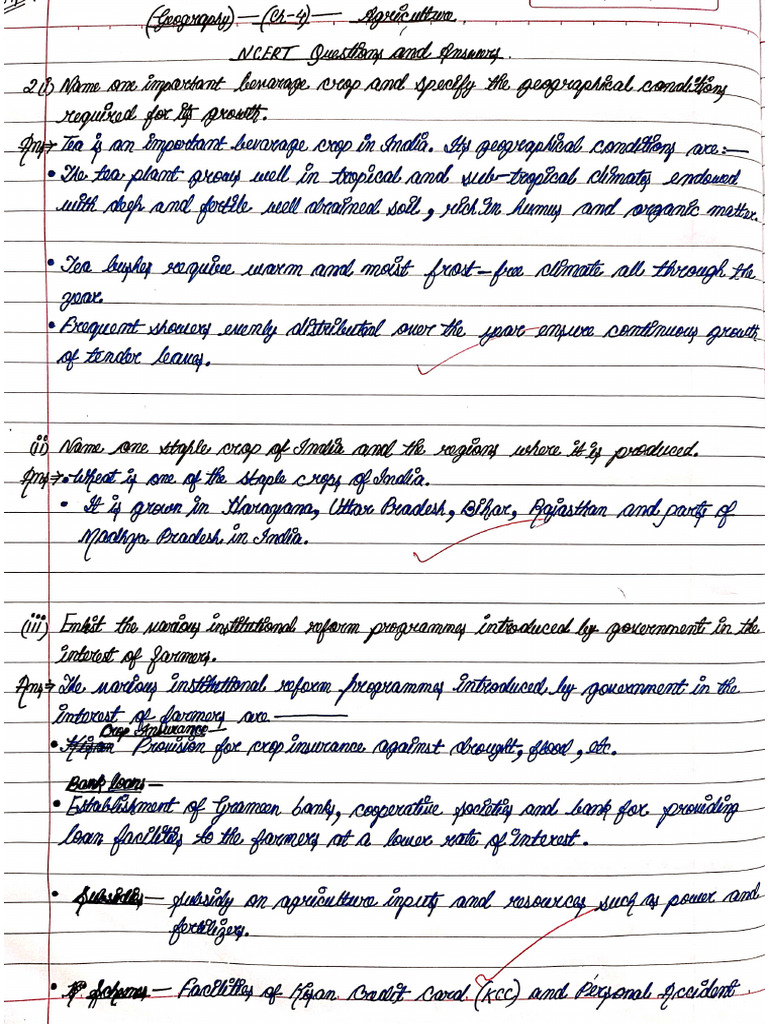 (Geography) — (Ch-4) — Agriculture
NCERT Questions and Answers.
2(i) Name one important beverage crop and specify the geographical conditions
required for its growth.
Ans→ Tea is an important beverage crop in India. Its geographical conditions are:—
• The tea plant grows well in tropical and sub-tropical climates endowed
with deep and fertile well drained soil, rich in humus and organic matter.
• Tea bushes require warm and moist frost-free climate all through the
year.
• Frequent showers evenly distributed over the year ensure continuous growth
of tender leaves.
(ii) Name one staple crop of India and the regions where it is produced.
Ans→ • Wheat is one of the staple crops of India.
• It is grown in Harayana, Uttar Pradesh, Bihar, Rajasthan and parts of
Madhya Pradesh in India.
(iii) Enlist the various institutional reform programmes introduced by government in the
interest of farmers.
Ans→ The various institutional reform programmes introduced by government in the
interest of farmers are ———
Crop Insurance—
• Provision for crop insurance against drought, flood, etc.
Bank loans—
• Establishment of Grameen banks, cooperative societies and bank for providing
loan facilities to the farmers at a lower rate of interest.
• Subsidies— subsidy on agriculture inputs and resources such as power and
fertilizers.
• Schemes— Facilities of Kisan Credit Card (KCC) and Personal Accident